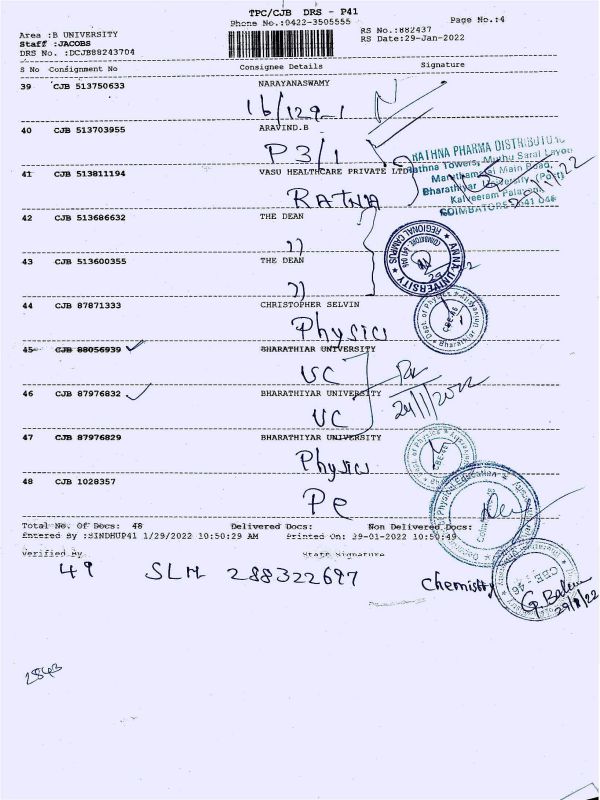 TPC/CJB DRS - P41
Phone No.:0422-3505555
Page No.:4
Area :B UNIVERSITY
RS No.:882437
Staff :JACOBS
RS Date:29-Jan-2022
DRS No. :DCJB88243704
S No Consignment No Consignee Details Signature
39 CJB 513750633 NARAYANASWAMY
16/129-1
40 CJB 513703955 ARAVIND.B
P3/1
RATHNA PHARMA DISTRIBUTORS
Rathna Towers, Muthu Saral Layout
41 CJB 513811194 VASU HEALTHCARE PRIVATE LTD
Main Road,
Bharathiyar University, (Post)
RATNA
COIMBATORE-641 046
42 CJB 513686632 THE DEAN
ANNA UNIVERSITY
REGIONAL CAMPUS
43 CJB 513600355 THE DEAN
44 CJB 87871333 CHRISTOPHER SELVIN
Physics
Dept. of Physics
Bharathiar University
CBE-46
45 CJB 88056939 BHARATHIAR UNIVERSITY
VC
46 CJB 87976832 BHARATHIYAR UNIVERSITY
VC
47 CJB 87976829 BHARATHIYAR UNIVERSITY
Physics
CBE-46
48 CJB 1028357
PE
Physical Education
Total No. Of Docs: 48 Delivered Docs: Non Delivered Docs:
Entered By :SINDHUP41 1/29/2022 10:50:29 AM Printed On: 29-01-2022 10:50:49
Verified By Staff Signature
49 SLM 288322697 Chemistry
CBE - 46
G. Balu
29/1/22
2843